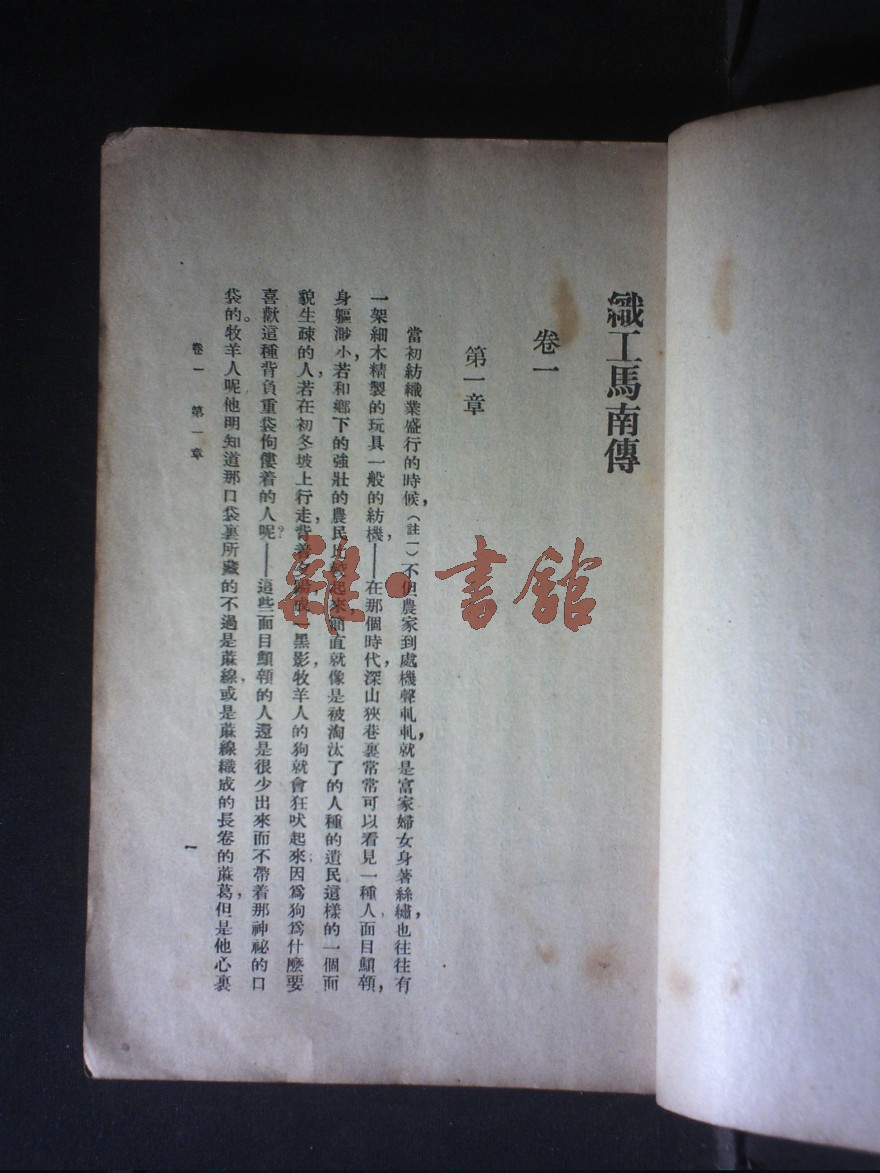 織工馬南傳
卷一
第一章
當初紡織業盛行的時候，（註一）不但農家到處機聲軋軋，就是富家婦女身著絲繡，也往往有
一架細木精製的玩具一般的紡機——在那個時代，深山狹巷裏常常可以看見一種人面目顦顇，
身軀渺小，若和鄉下的強壯的農民比較起來，簡直就像是被淘汰了的人種的遺民這樣的一個面
貌生疎的人，若在初冬坡上行走，背着夕陽成一黑影，牧羊人的狗就會狂吠起來；因爲狗爲什麼要
喜歡這種背負重袋佝僂着的人呢？——這些面目顦顇的人還是很少出來而不帶着那神祕的口
袋的。牧羊人呢他明知道那口袋裏所藏的不過是蔴線，或是蔴線織成的長卷的蔴葛，但是他心裏
卷一 第一章
一
雜·書館